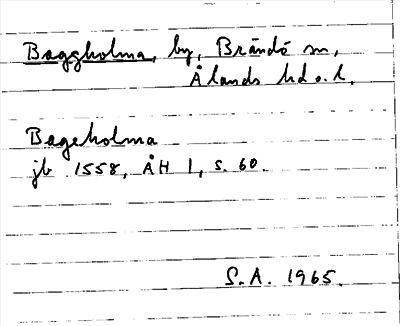 Baggholma, by, Brändö sn,
Ålands hd o. l.
Bageholma
jb 1558, ÅH 1, s. 60.
S.A. 1965.